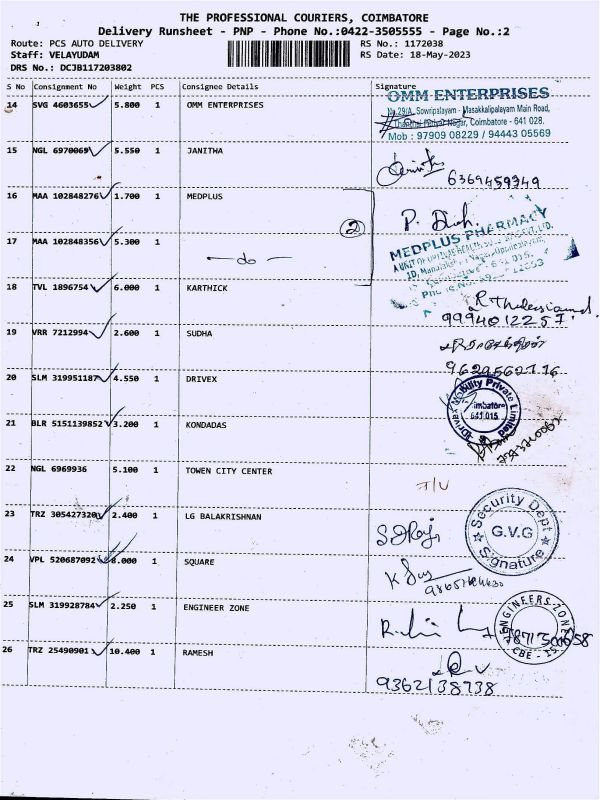 THE PROFESSIONAL COURIERS, COIMBATORE
Delivery Runsheet - PNP - Phone No.:0422-3505555 - Page No.:2
Route: PCS AUTO DELIVERY
RS No.: 1172038
Staff: VELAYUDAM
RS Date: 18-May-2023
DRS No.: DCJB117203802
S No Consignment No Weight PCS Consignee Details Signature
14 SVG 4603655 5.800 1 OMM ENTERPRISES
OMM ENTERPRISES
No.29/A, Sowripalayam - Masakkalipalayam Main Road,
Nagar, Coimbatore - 641 028.
Mob : 97909 08229 / 94443 05569
15 NGL 6970069 5.550 1 JANITHA
6369459349
16 MAA 102848276 1.700 1 MEDPLUS
2
MEDPLUS PHARMACY
17 MAA 102848356 5.300 1 -do-
18 TVL 1896754 6.000 1 KARTHICK
9994012257
19 VRR 7212994 2.600 1 SUDHA
20 SLM 319951187 4.550 1 DRIVEX
Drivex Mobility Private Limited
Coimbatore
641 015
21 BLR 5151139852 3.200 1 KONDADAS
22 NGL 6969936 5.100 1 TOWEN CITY CENTER
T/U
23 TRZ 305427320 2.400 1 LG BALAKRISHNAN
Security Dept
G.V.G
Signature
24 VPL 520687092 8.000 1 SQUARE
25 SLM 319928784 2.250 1 ENGINEER ZONE
ENGINEERS ZONE
CBE - 15
26 TRZ 25490901 10.400 1 RAMESH
9362138738